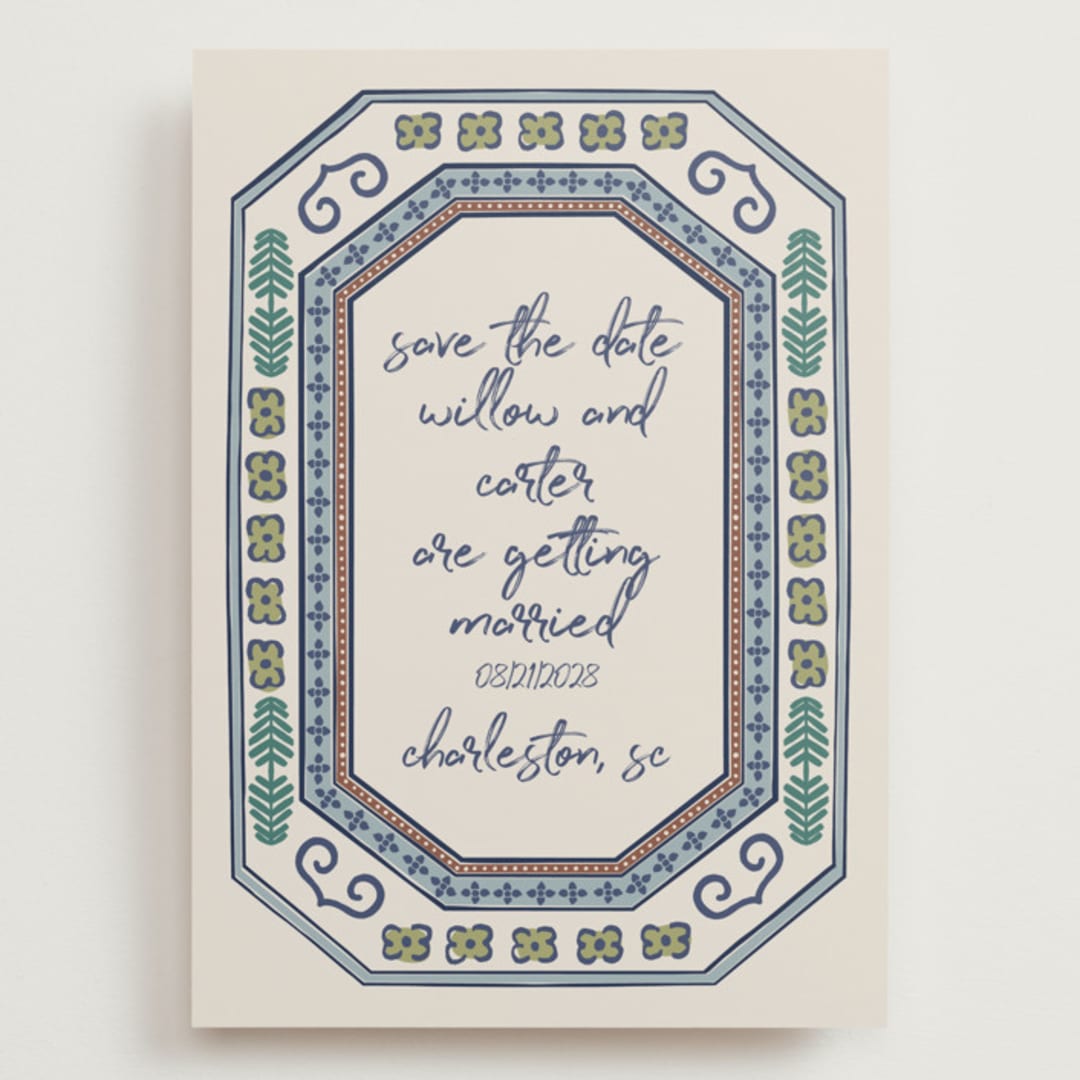 save the date
willow and
carter
are getting
married
08/21/2028
charleston, sc